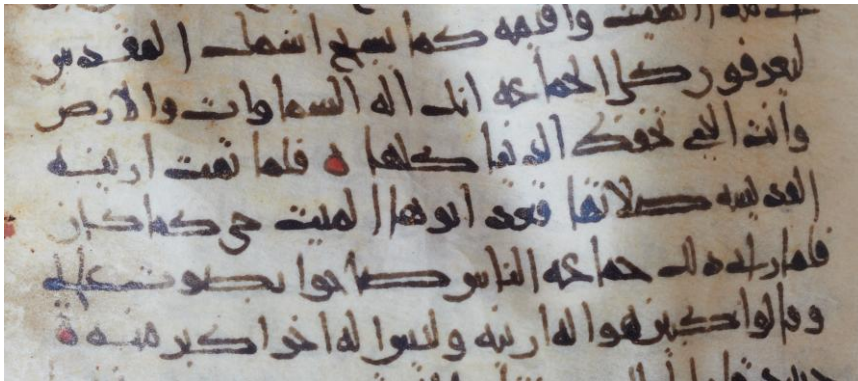 الميت واقيمه كما يسبح اسمك المقدس
ليعرفون كل الجماعه انك اله السماوات والارض
وانت الذي تحفظ الدنيا كلها ه فلما تمت ارينه
القديسه صلاتها قعد ابوها الميت حي كما كان
فلما راى ذلك جماعه الناس صاحوا بصوت عالي
وقالوا كبير هو اله ارينه وليس اله اخر اكبر منه ه